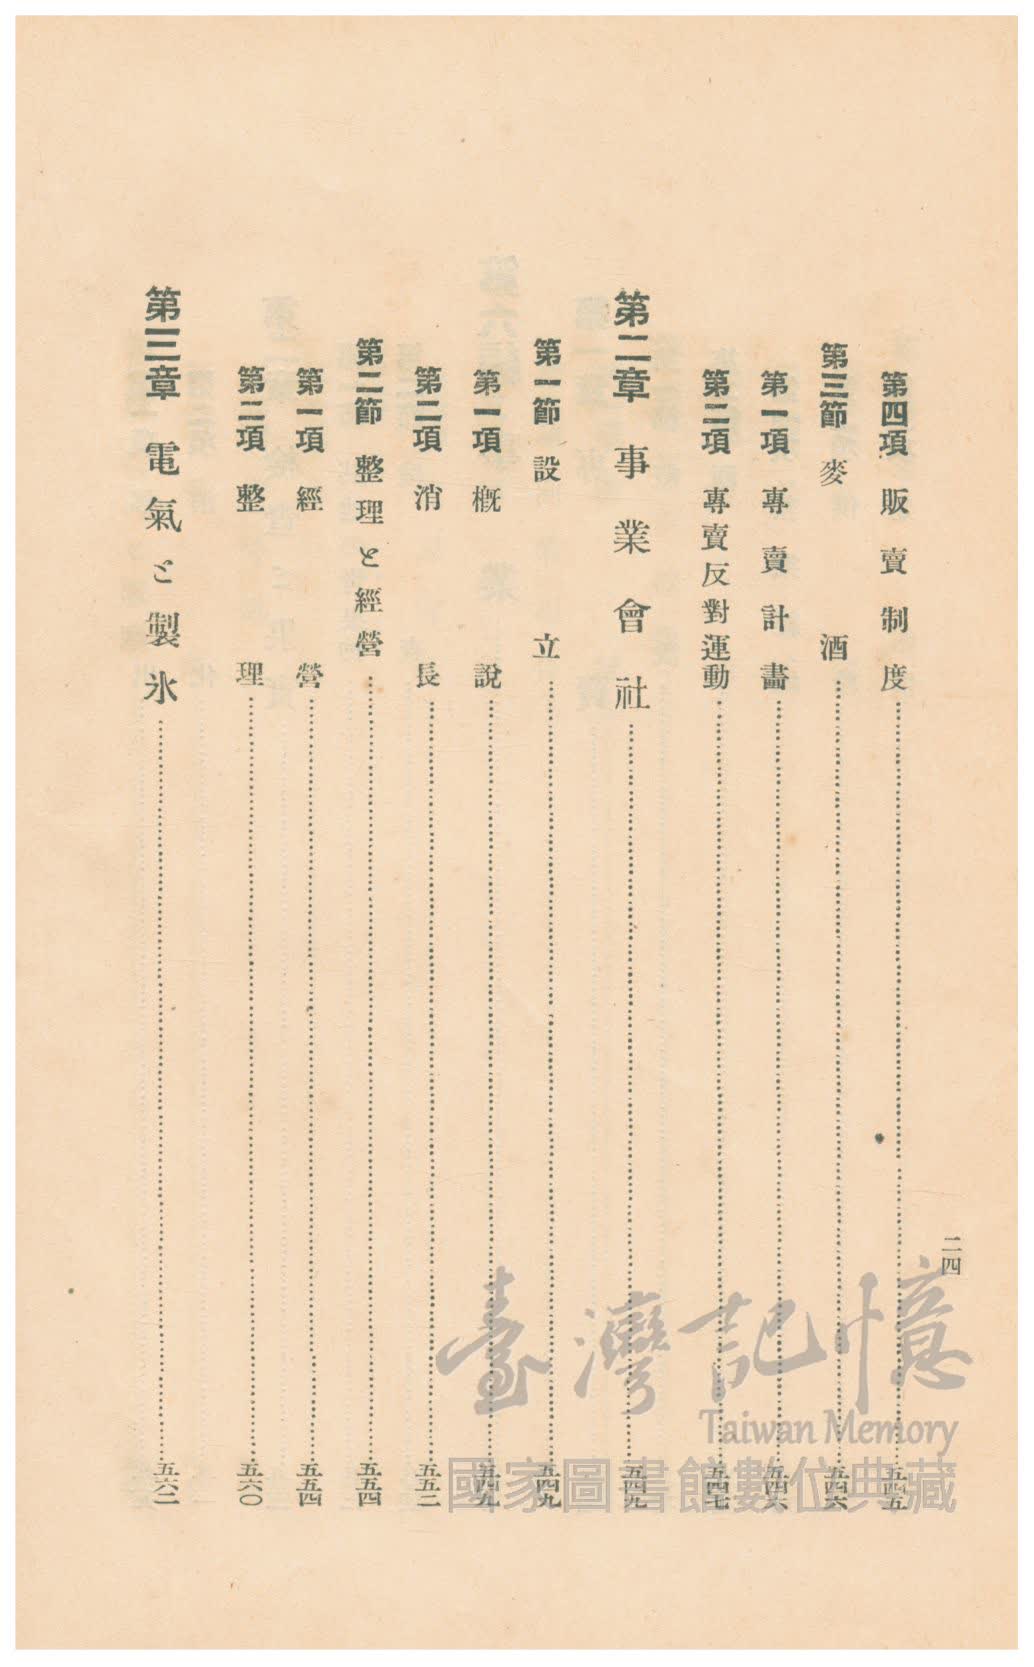 第四項 販賣制度……五四五
第三節 麥酒……五四六
第一項 專賣計畵……五四六
第二項 專賣反對運動……五四七
第二章 事業會社……五四九
第一節 設立……五四九
第一項 槪說……五四九
第二項 消長……五五二
第二節 整理と經營……五五四
第一項 經營……五五四
第二項 整理……五六〇
第三章 電氣と製氷……五六二
二四
臺灣記憶
Taiwan Memory
國家圖書館數位典藏